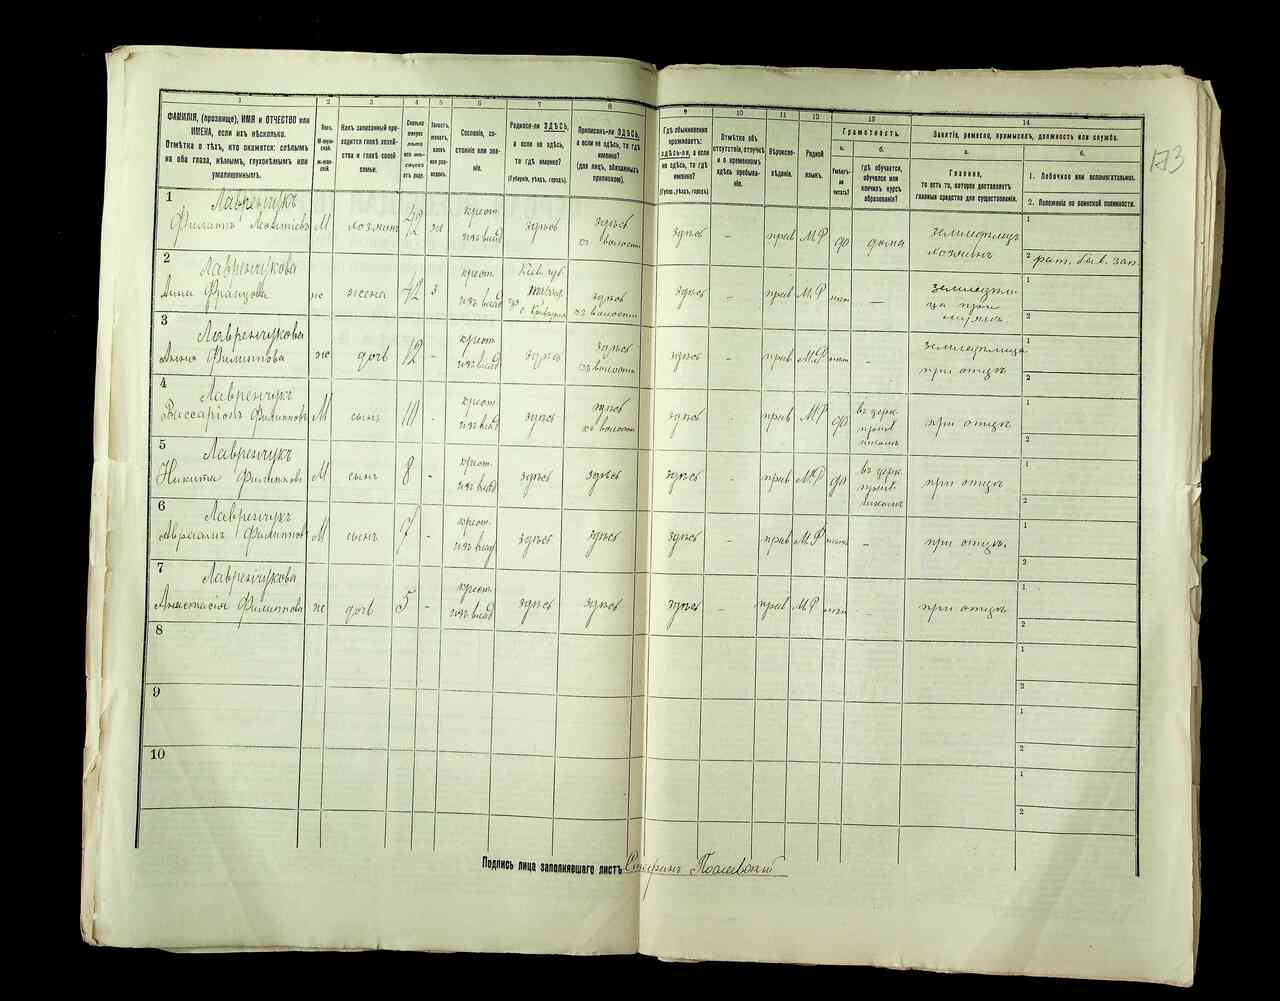 1 2 3 4 5 6 7 8 9 10 11 12 13 14
ФАМИЛІЯ, (прозвище), ИМЯ и ОТЧЕСТВО или
ИМЕНА, если ихъ нѣсколько.
Отмѣтка о тѣхъ, кто окажется: слѣпымъ
на оба глаза, нѣмымъ, глухонѣмымъ или
умалишеннымъ.
Полъ.
М-мужской.
ж-женскій.
Какъ записанный приходится
главѣ хозяйства
и главѣ своей
семьи.
Сколько
минуло
лѣтъ
или мѣсяцевъ
отъ роду.
Холостъ,
женатъ,
вдовъ
или разведенъ.
Сословіе, состояніе
или званіе.
Родился-ли ЗДѢСЬ,
а если не здѣсь,
то гдѣ именно?
(Губернія, уѣздъ, городъ).
Приписанъ-ли ЗДѢСЬ,
а если не здѣсь, то гдѣ
именно?
(для лицъ, обязанныхъ
припискою).
Гдѣ обыкновенно
проживаетъ:
здѣсь-ли, а если
не здѣсь, то гдѣ
именно?
(Губер., уѣздъ, городъ).
Отмѣтка объ
отсутствіи, отлучкѣ
и о временномъ
здѣсь пребываніи.
Вѣроисповѣданіе.
Родной
языкъ.
Грамотность.
а.
Умѣетъ-ли
читать?
б.
гдѣ обучается,
обучался или
кончилъ курсъ
образованія?
Занятіе, ремесло, промыселъ, должность или служба.
а.
Главное,
то есть то, которое доставляетъ
главныя средства для существованія.
б.
1. Побочное или вспомогательное.
2. Положеніе по воинской повинности.
173
1
Лавренчукъ
М хозяинъ 42 ж крест. здѣсь здѣсь здѣсь – прав М.Р. да дома
хозяинъ
2 рат. быв. зап.
2
Лавренчукова
Анна жена 42 з крест. Кіев. губ. здѣсь здѣсь – прав М.Р. –
при мужѣ
3
Лавренчукова
Анна Филиппова дочь 12 - крест здѣсь здѣсь здѣсь – прав М.Р. –
при отцѣ
4
Лавренчукъ
Виссаріонъ Филипповъ М сынъ - крест. здѣсь здѣсь здѣсь – прав М.Р. да въ церк. при отцѣ
5
Лавренчукъ
Никита Филипповъ М сынъ 8 - крест. здѣсь здѣсь здѣсь – прав М.Р. да въ церк. при отцѣ
6
Лавренчукъ
Авраамъ Филипповъ М сынъ 7 - крест. здѣсь здѣсь здѣсь – прав М.Р. – при отцѣ.
7
Лавренчукова
Анастасія Филиппова ж дочь 5 - крест. здѣсь здѣсь здѣсь – прав М.Р. – при отцѣ
8
9
10
Подпись лица заполнявшаго листъ